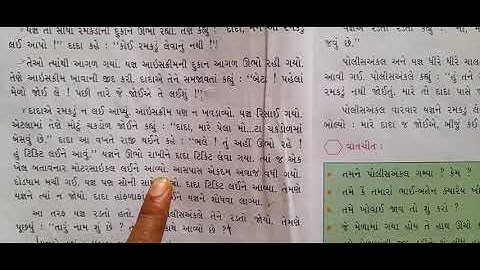 પણ તો સીધો રમકડાંની દુકાને ઊભો રહ્યો. તેણે કહ્યું : "દાદા, મને આ
લઈ આપો !" દાદા કહે : "કોઈ રમકડું લેવાનું નથી !"
તેઓ ત્યાંથી આગળ ગયાં. યજ્ઞ આઇસક્રીમની દુકાન આગળ ઊભો રહી ગયો.
તેણે આઇસક્રીમ ખાવાની જીદ કરી. દાદાએ તેને સમજાવતાં કહ્યું : "બેટા ! પહેલાં
મેળો જોઈ લે ! પછી તારે જે જોઈએ તે લઈશું !"
દાદાએ રમકડું ન લઈ આપ્યું. આઇસક્રીમ પણ ન ખવડાવ્યો. યજ્ઞ રિસાઈ ગયો.
એટલામાં તેણે મોટું ચકડોળ જોઈને કહ્યું : "દાદા, મારે પેલા મો...ટા ચકડોળમાં
બેસવું છે." દાદા આ વખતે રાજી થઈને કહે : "ભલે ! તું અહીં ઊભો રહે !
હું ટિકિટ લઈને આવું." યજ્ઞને ઊભો રાખીને દાદા ટિકિટ લેવા ગયા. ત્યાં જ એક
ખેલ બતાવનાર મોટરસાઇકલ લઈને આવ્યો. આસપાસ એકદમ અવાજ વધી ગયો.
દોડધામ મચી ગઈ. યજ્ઞ પણ સૌની સાથે દાદા ટિકિટ લઈને આવ્યા. તેમણે
યજ્ઞને ત્યાં ન જોયો. દાદા હાંફળાફાં યજ્ઞને શોધવા લાગ્યા.
આ તરફ યજ્ઞ રડતો હતો. પોલીસઅંકલે તેને રડતો જોયો. તેમણે
પૂછ્યું : "તારું નામ શું છે ? સાથે આવ્યો છે ?"
જવું છે."
પોલીસઅંકલ અને યજ્ઞ ધીરે ધીરે ચાલ
આવી ગઈ. પોલીસઅંકલે કહ્યું : "હું તને
રમકડું નથી જોઈતું. મારે તો દાદા
પોલીસઅંકલ વારંવાર યજ્ઞને રમકડું
બોલ્યો : મારે દાદા જ જોઈએ, બીજું કંઈ
વાતચીત :
તમને પોલીસઅંકલ ગમ્યા ? કેમ ?
તમે કે તમારાં ભાઈ-બહેન ક્યારેય
તમે ખોવાઈ જાવ તો શું કરો ?
જે મેળામાં ગયાં હોય તે હાથ ઊંચો